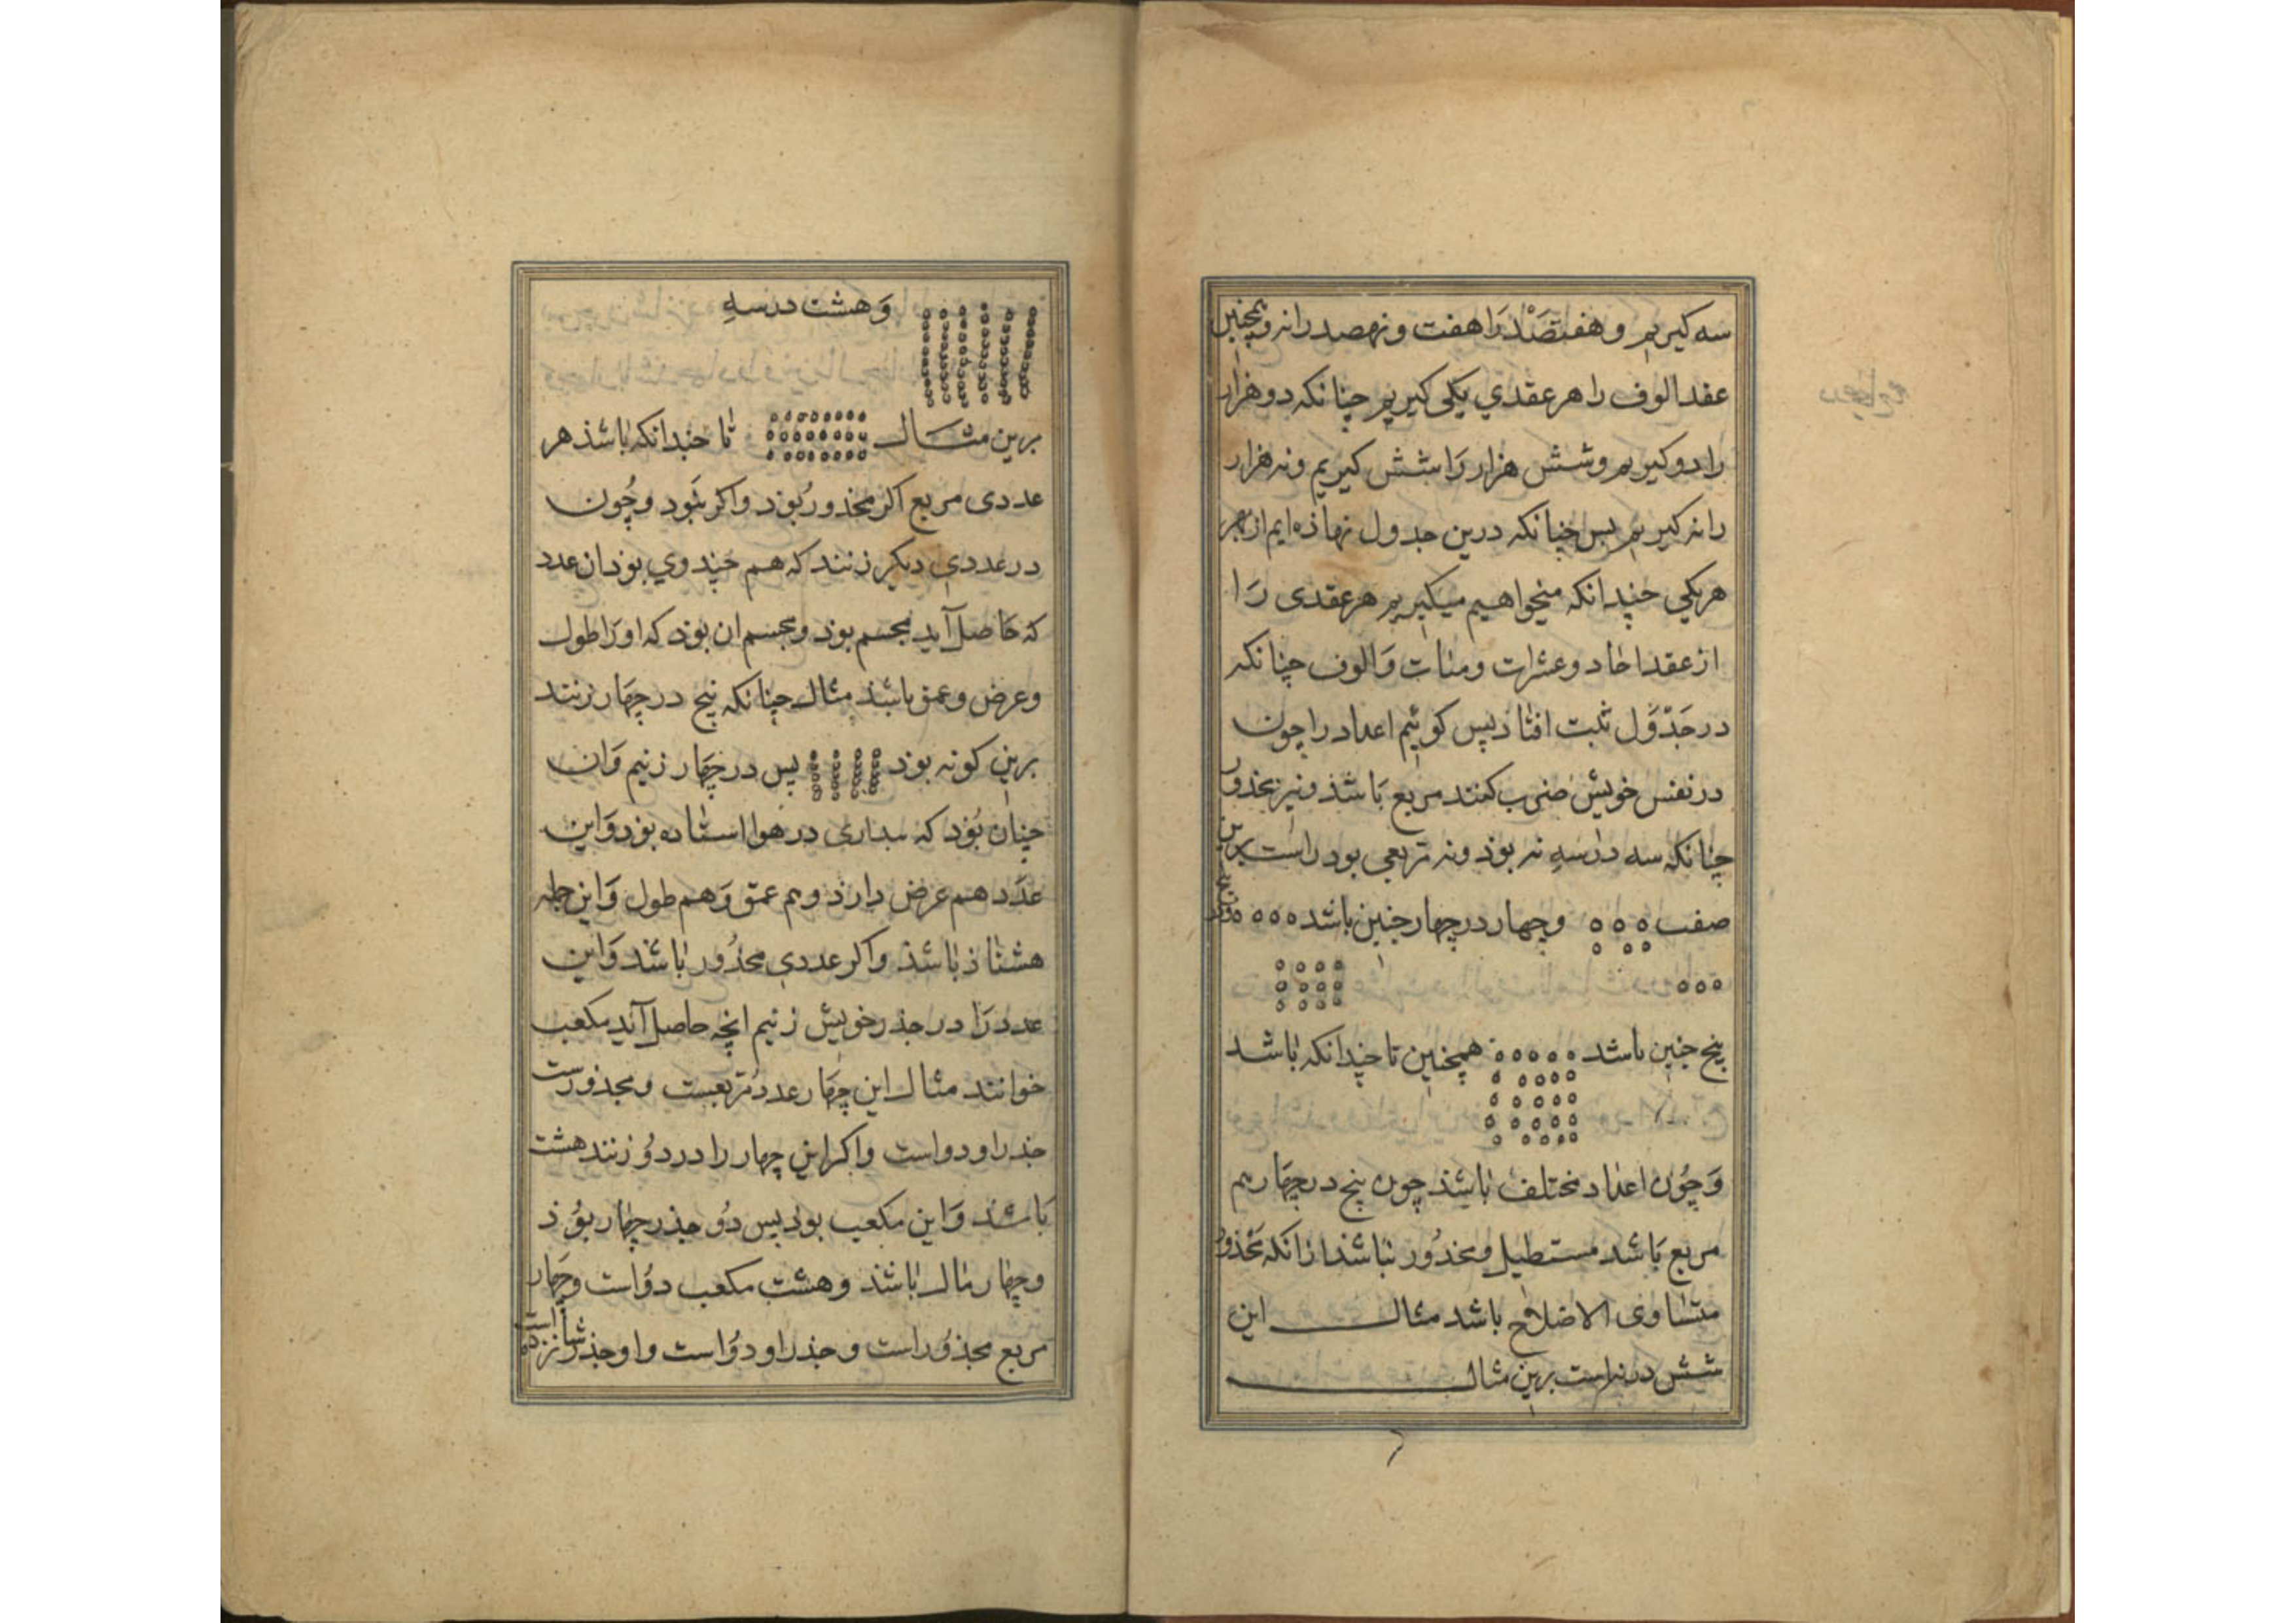 سه کیریم و هفتصَدْ رَا هفت و نهصد را نه و همچنین
عقد الوف را هر عقدي یکی کیریم چنانکه دو هزار
را دو کیریم و شش هزار رَا شش کیریم و نه هزار
را نه کیریم بس چنانکه درین جدول نهاذه ایم از بهر
هریکي چندانکه میخواهیم میکیریم هر عقدی رَا
از عقد احاد و عشرات و مئات وَالوف چنانکه
در جَدْوَل ثبت افتاد پس کوئیم اعداد را چون
در نفس خویش ضرب کنند مربع بَاشذ و نیز مجذور
چنانکه سه در سهِ نه بوَذ و نه تربعی بود راست برین
صفت و چهار در چهار چنین باشد
پنج چنین باشد همچنین تا چندانکه باشد
وَ چوُن اعداد مختلف باشذ چون پنج در چهَار هم
مربع بَاشد مستطیل و مجذُور نباشذ ازانکه مجَذور
متساوی الاضلاع باشد مثال این
شش در نه است برین مثال
وَ هشت در سهِ
برین مثال تا چندانکه باشذ هر
عددی مربع اکر مجذورُ بوَذ و اکر نبَود و چُون
در عددی دیکر زنند که هم چند وي بوَذ ان عدد
که حَاصل آید مجسم بوذ و مجسم ان بوَذ که اورَا طول
و عرض و عمق باشذ مثال چنانکه پنج در چهَار زنند
برین کونه بوَذ پس در چهَار زنیم وَ ان
چنان بوَُد که در هوا استاده بوَذ وَ این
عدَد هم عرض دارذ و هم عمق وَ هم طول وَ این جمله
هشتاذ باشذ و اکر عددي مجذُور باشد وَ این
عدد رَا در جذر خویش زنیم انچه حاصل آید مکعب
خوانند مثال این چهَار عدد تربعیست و مجذورست
جذر او دو است و اکر این چهار را در دوُ زنند هشت
بَاشذ وَ این مکعب بود پس دوُ جذر چهار بوُذ
و چهار مال باشذ و هشت مکعب دوُ است و چهَار
مربع مجذوُر است و جذر او دوُاست و او جذر شانزده است